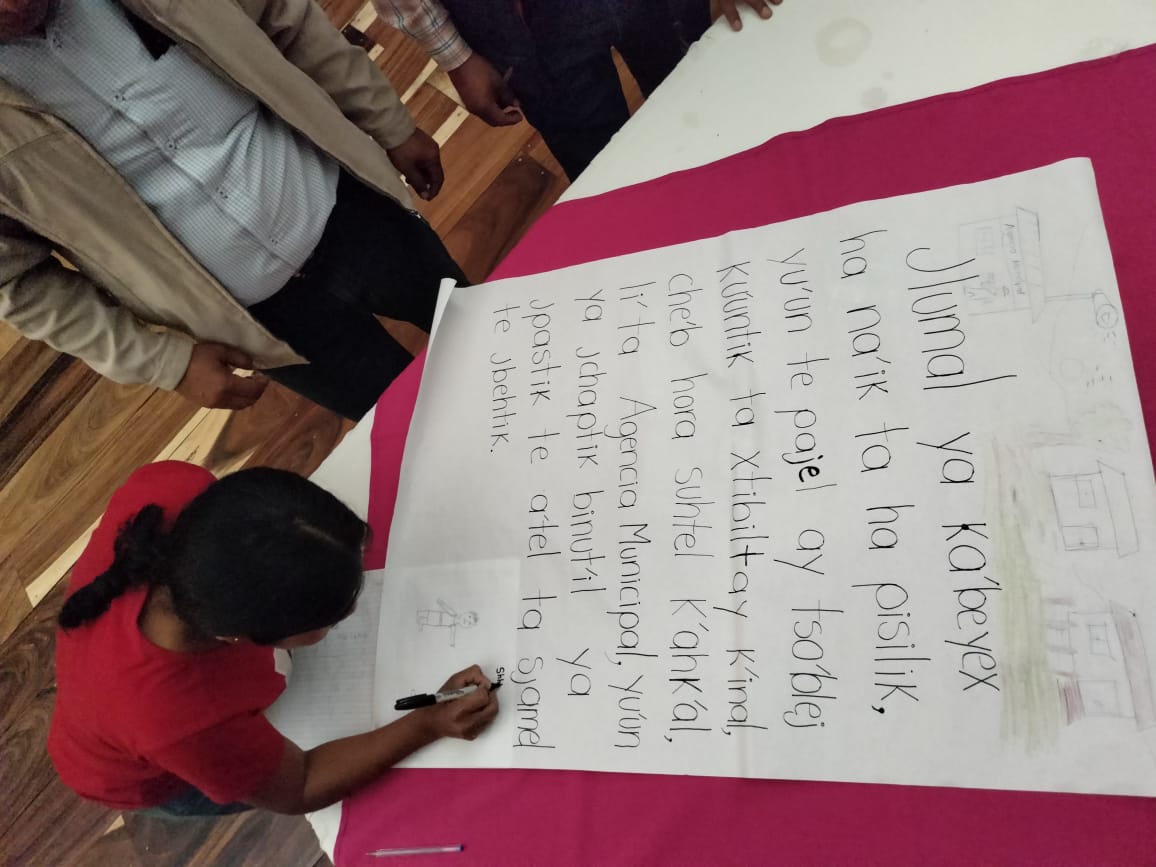 Agencia Municipal
Jlumal ya ka'beyex
ha na'ik ta ha pisilik,
yu'un te pajel ay tso'blej
Ku'untik ta xtibilt+ay K'inal,
cheb hora suhtel K'ahK'al,
li' ta Agencia Municipal, yu'un
ya Jchaptik binut'il ya
Jpastik te a'tel ta Sjamel
te Jbehtik.